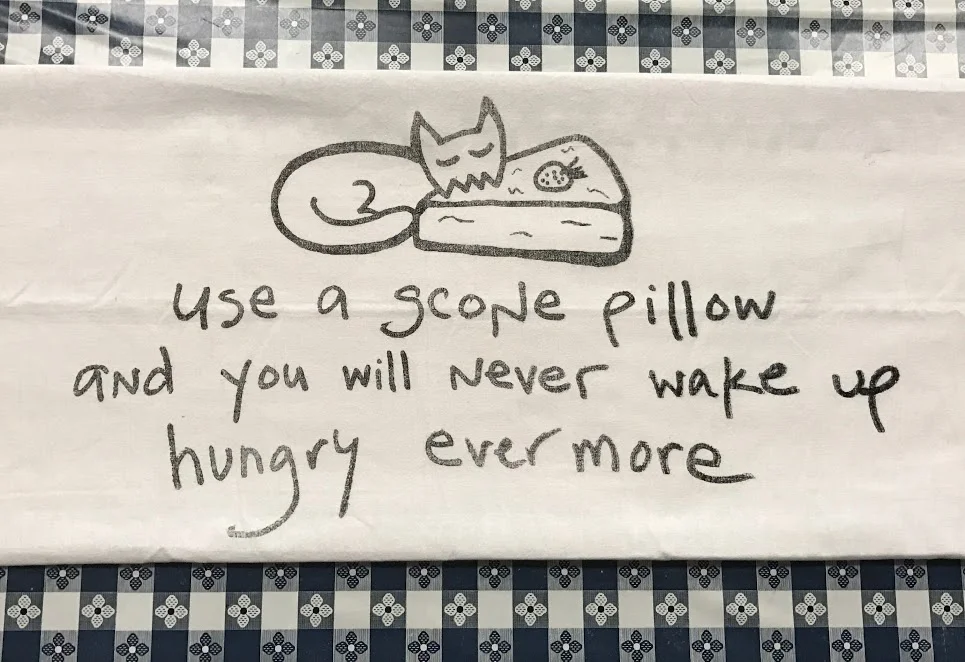 use a scone pillow
and you will never wake up
hungry ever more